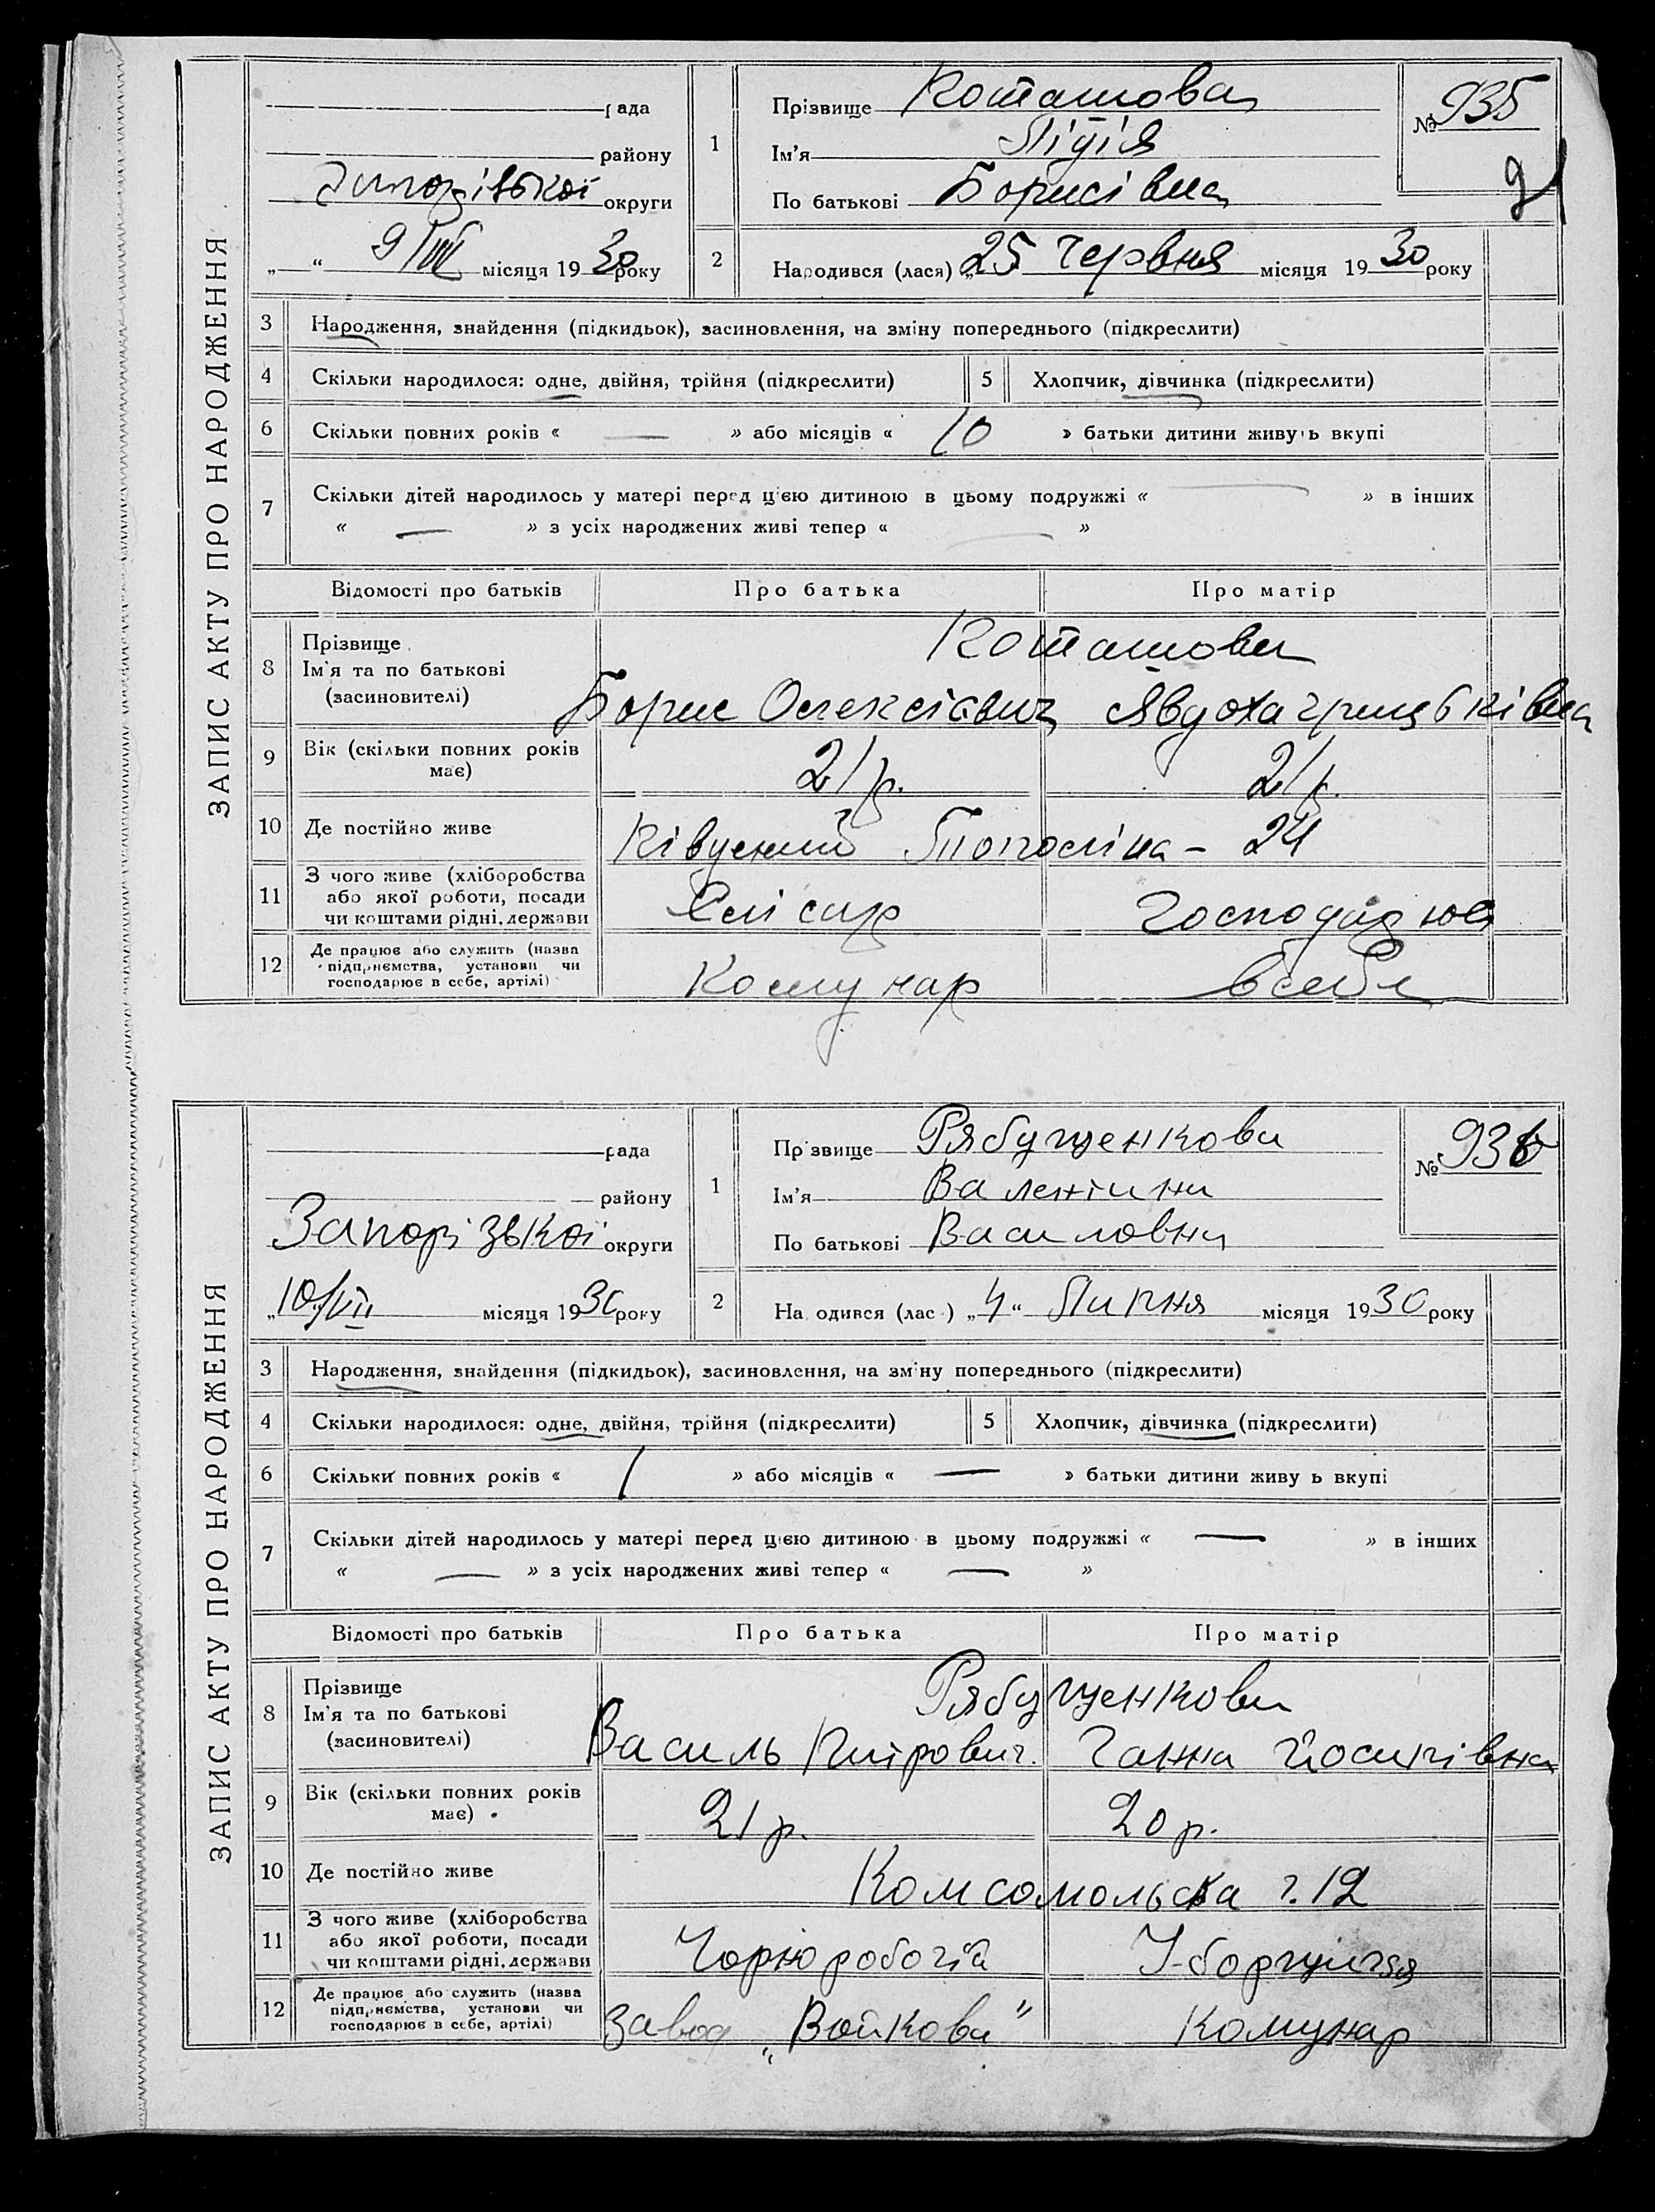 ЗАПИС АКТУ ПРО НАРОДЖЕННЯ
рада
району
Запорізької округи
9/VII місяця 1930 року
1
Прізвище Коташова
Ім'я Лідія
По батькові Борисівна
№ 935
2
Народився (лася) „25 Червня місяця 1930 року
3 Народження, знайдення (підкидьок), засиновлення, на зміну попереднього (підкреслити)
4 Скільки народилося: одне, двійня, трійня (підкреслити) 5 Хлопчик, дівчинка (підкреслити)
6 Скільки повних років « — » або місяців « 10 » батьки дитини живуть вкупі
7 Скільки дітей народилось у матері перед цією дитиною в цьому подружжі « — » в інших
« — » з усіх народжених живі тепер « — »
Відомості про батьків Про батька Про матір
8 Прізвище
Ім'я та по батькові
(засиновителі)
Коташови
Борис Олексієвич Явдоха Грицьківна
9 Вік (скільки повних років має) 21 р. 21 р.
10 Де постійно живе 24
11 З чого живе (хліборобства
або якої роботи, посади
чи коштами рідні, держави
Слісар Господарює
12 Де працює або служить (назва
підприємства, установи чи
господарює в себе, артілі)
Комунар в себе
ЗАПИС АКТУ ПРО НАРОДЖЕННЯ
рада
району
Запорізької округи
„10/VII місяця 1930 року
1
Прізвище Рябущенкова
Ім'я Валентина
По батькові Василовна
№ 936
2
Народився (лася) „4“ Липня місяця 1930 року
3 Народження, знайдення (підкидьок), засиновлення, на зміну попереднього (підкреслити)
4 Скільки народилося: одне, двійня, трійня (підкреслити) 5 Хлопчик, дівчинка (підкреслити)
6 Скільки повних років « 1 » або місяців « — » батьки дитини живуть вкупі
7 Скільки дітей народилось у матері перед цією дитиною в цьому подружжі « — » в інших
« — » з усіх народжених живі тепер « — »
Відомості про батьків Про батька Про матір
8 Прізвище
Ім'я та по батькові
(засиновителі)
Рябущенкови
Василь Петрович. Ганна Йосипівна
9 Вік (скільки повних років має) 21 р. 20 р.
10 Де постійно живе Комсомольска 12
11 З чого живе (хліборобства
або якої роботи, посади
чи коштами рідні, держави
Чорноробочій
12 Де працює або служить (назва
підприємства, установи чи
господарює в себе, артілі)
Завод „Войкова“ Комунар